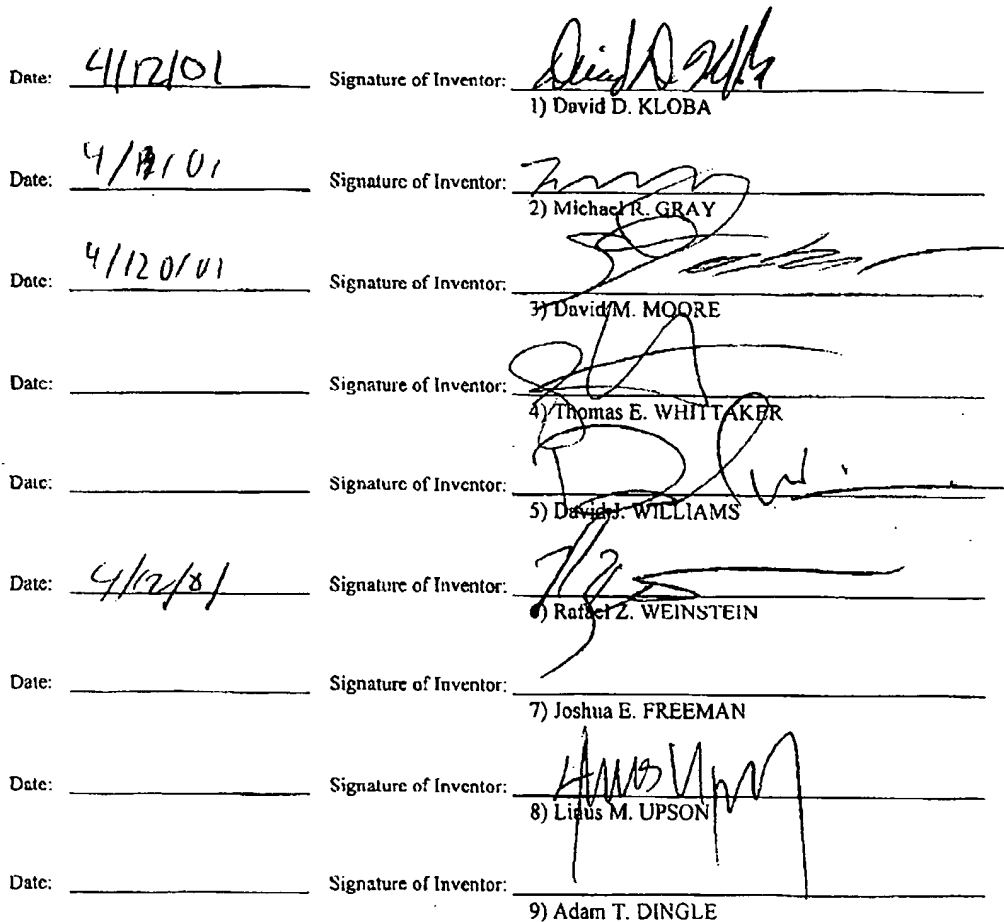 Date: 4/12/01 Signature of Inventor:
1) David D. KLOBA
Date: Signature of Inventor:
2) Michael R. GRAY
Date: 4/120/01 Signature of Inventor:
3) David M. MOORE
Date: Signature of Inventor:
4) Thomas E. WHITTAKER
Date: Signature of Inventor:
5) David J. WILLIAMS
Date: 4/12/01 Signature of Inventor:
6) Rafael Z. WEINSTEIN
Date: Signature of Inventor:
7) Joshua E. FREEMAN
Date: Signature of Inventor: Linus Upson
8) Linus M. UPSON
Date: Signature of Inventor:
9) Adam T. DINGLE